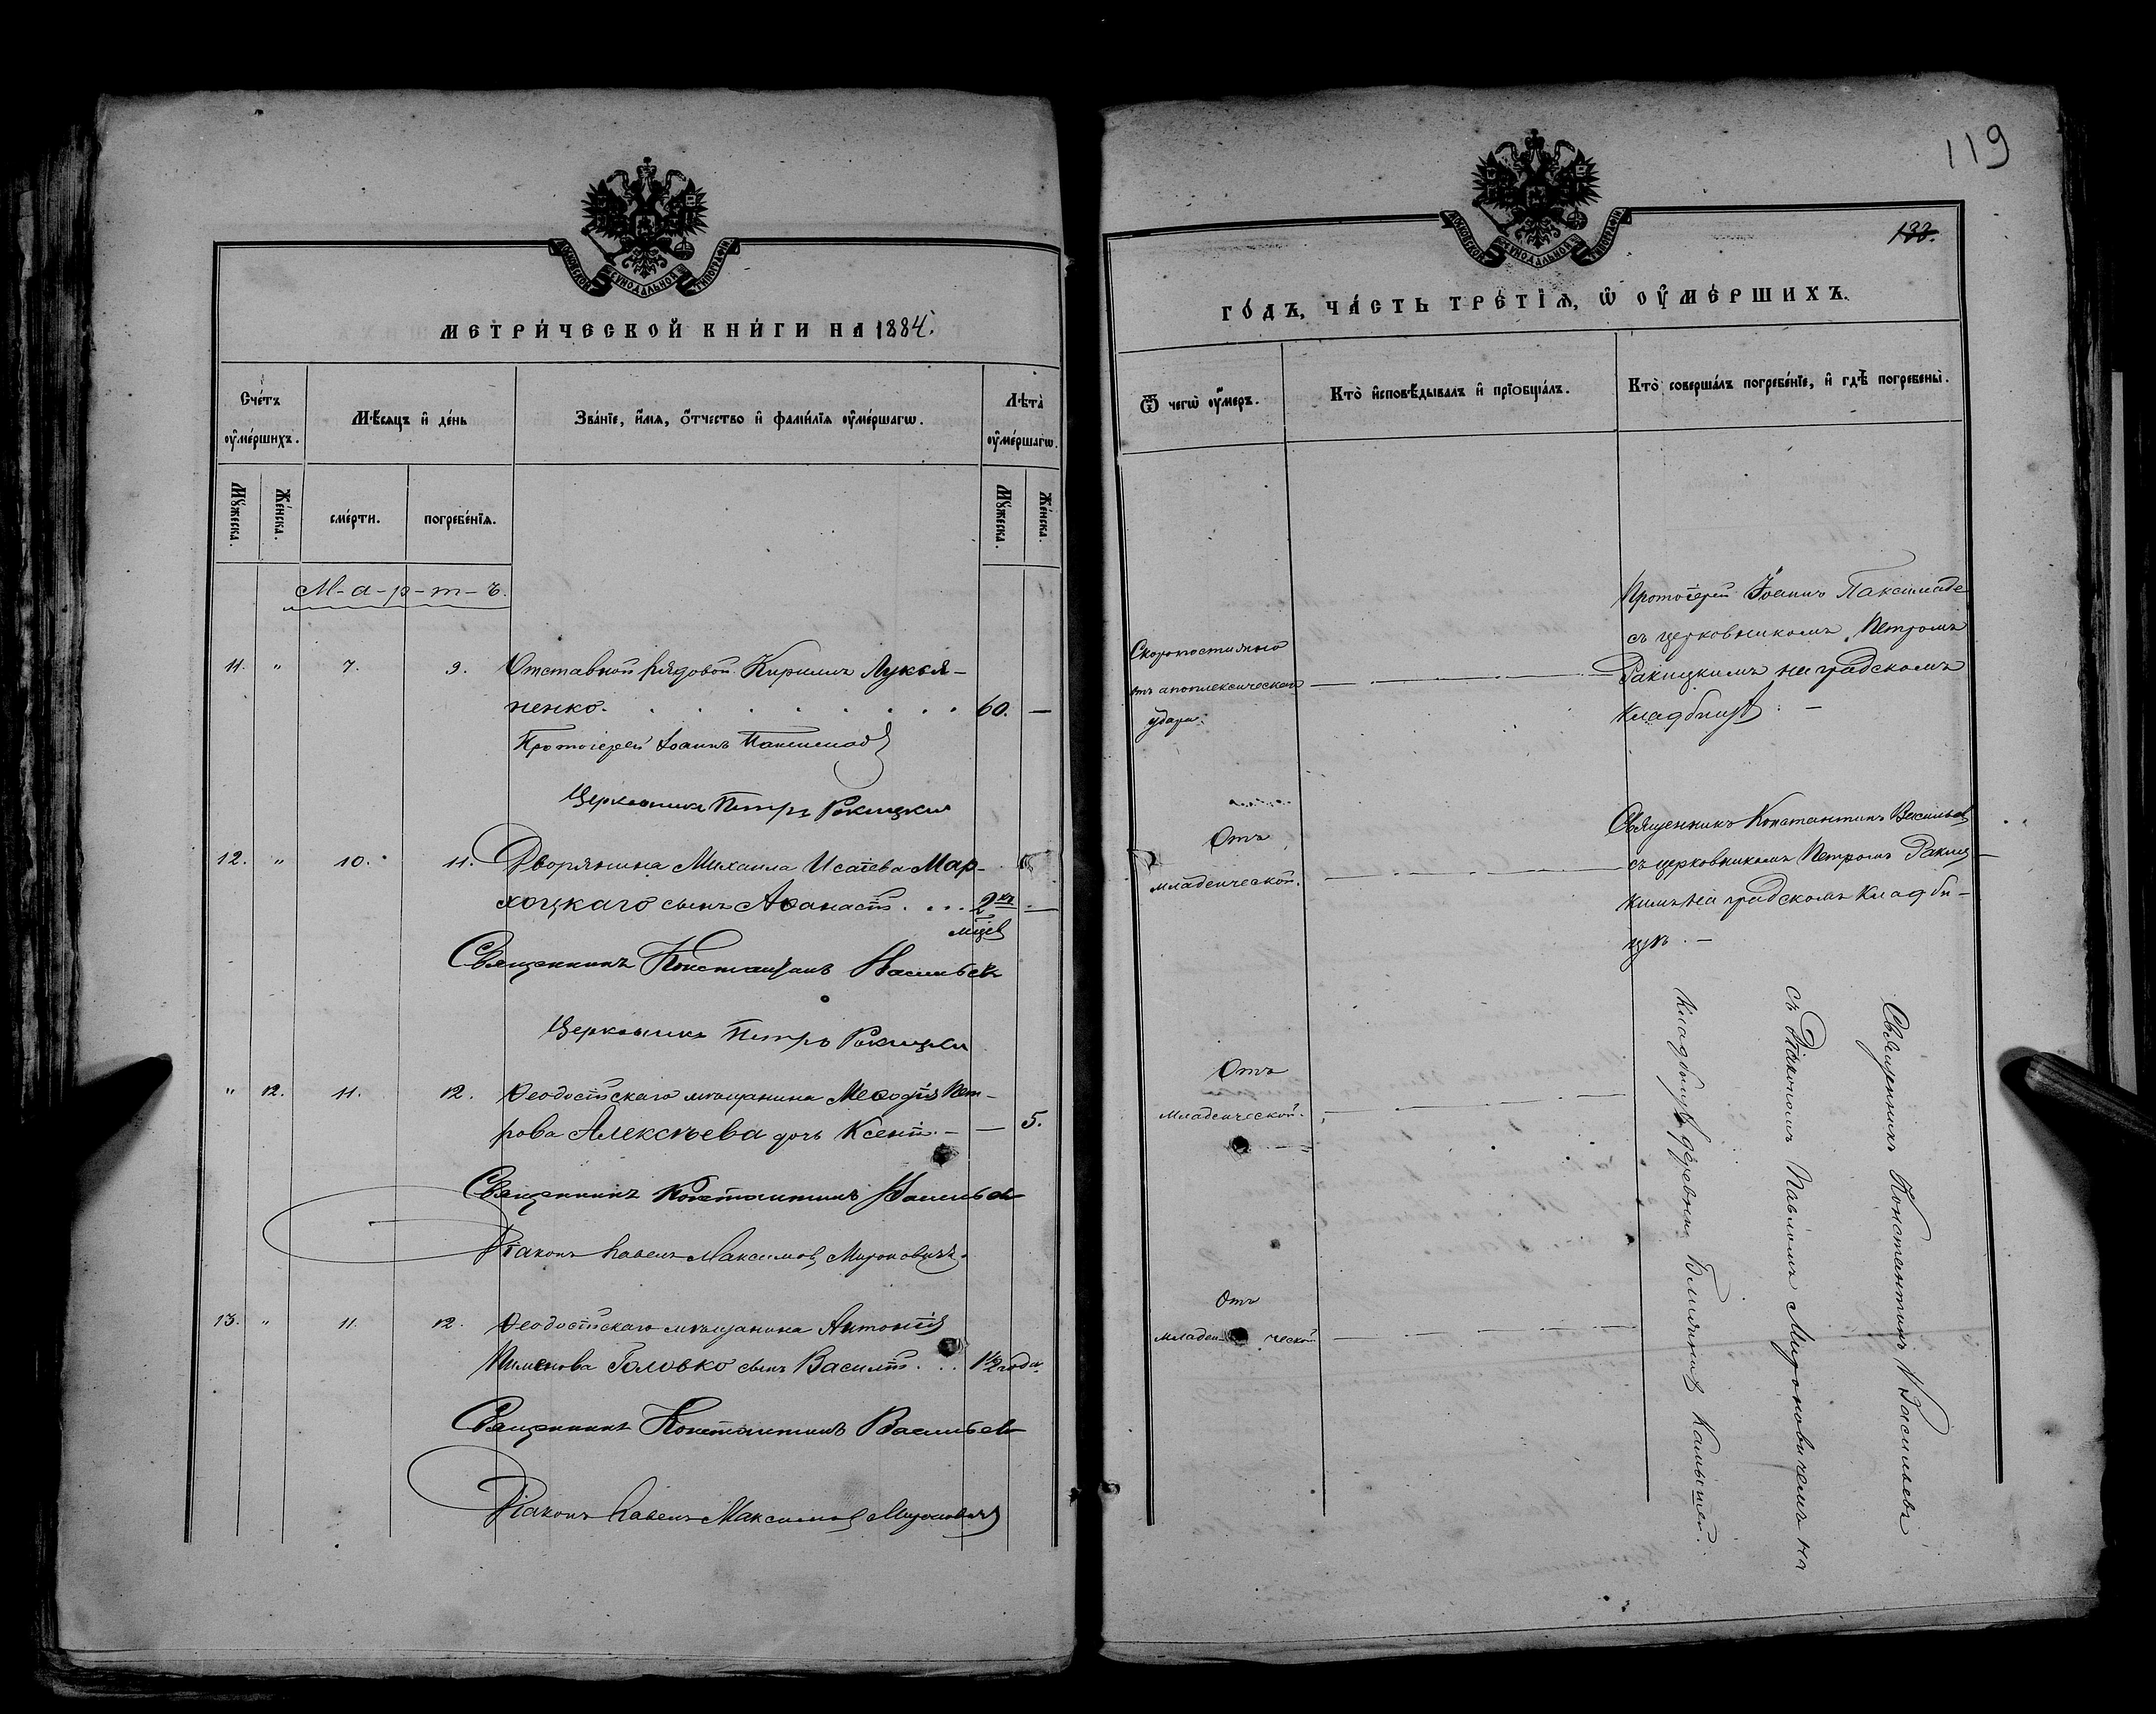 МОСКОВСКОЙ СУНОДАЛЬНОЙ ТИПОГРАФІИ
МЕТРИ́ЧЕСКОЙ КНИ́ГИ НА 1884.
Сче́тъ ᲂу҆ме́ршихъ.
Мѣ́сяцъ и҆ де́нь
Зва́нїе, и҆́мя, ѻ҆́тчество и҆ фами́лїя ᲂу҆ме́ршагѡ.
Лѣта̀ ᲂу҆ме́ршагѡ.
Мꙋ́жеска.
Же́нска.
сме́рти.
погребе́нїя.
Мꙋ́жеска.
Же́нска.
М-а-р-т-ъ.
11. " 7. 9. Отставной рядовой Кирилъ Лукья-
ненко. 60. —
Протоіерей Іоаннъ
Церковникъ Петръ Ракицкій
12. " 10. 11. Дворянина Михаила Исаіева Мар-
хоцкаго сынъ Аѳанасій. . . . 2хъ —
мцев
Священникъ Константинъ Васильев
Церковникъ Петръ Ракицкій
" 12. 11. 12. Ѳеодосійскаго мѣщанина Меѳодія Пет-
рова Алексѣева дочь Ксенія. — — 5.
Священникъ Константинъ Васильев
Діаконъ Павелъ Максимов Мироновичъ.
13. " 11. 12. Ѳеодосійскаго мѣщанина Антонія
Пименова Головко сынъ Василій. . . 1½ года.
Священникъ Константинъ Васильев
Діаконъ Павелъ Максимов Мироновичъ
119
МОСКОВСКОЙ СУНОДАЛЬНОЙ ТИПОГРАФІИ
133.
ГО́ДЪ, ЧА́СТЬ ТРЕ́ТЇЯ, Ѡ҆ ОУ҆МЕ́РШИХЪ.
Ѿ чегѡ̀ ᲂу҆́меръ.
Кто̀ и҆сповѣ́дывалъ и҆ прїобща́лъ.
Кто̀ соверша́лъ погребе́нїе, и҆ гдѣ̀ погребены̀.
Скоропостижно
отъ апоплексическаго
удара.
Протоіерей Іоаннъ
съ церковникомъ Петромъ
Ракицкимъ на градскомъ
кладбищѣ. —
Отъ
младенческой.
Священникъ Константинъ Васильев
съ церковникомъ Петромъ Ракиц—
кимъ на градскомъ кладби—
щѣ. —
Отъ
младенческой.
Отъ
младен ческой
Священникъ Константинъ Васильевъ
съ Діакономъ Павломъ Мироновичемъ на
кладбищѣ деревни Ближнихъ Камышей.